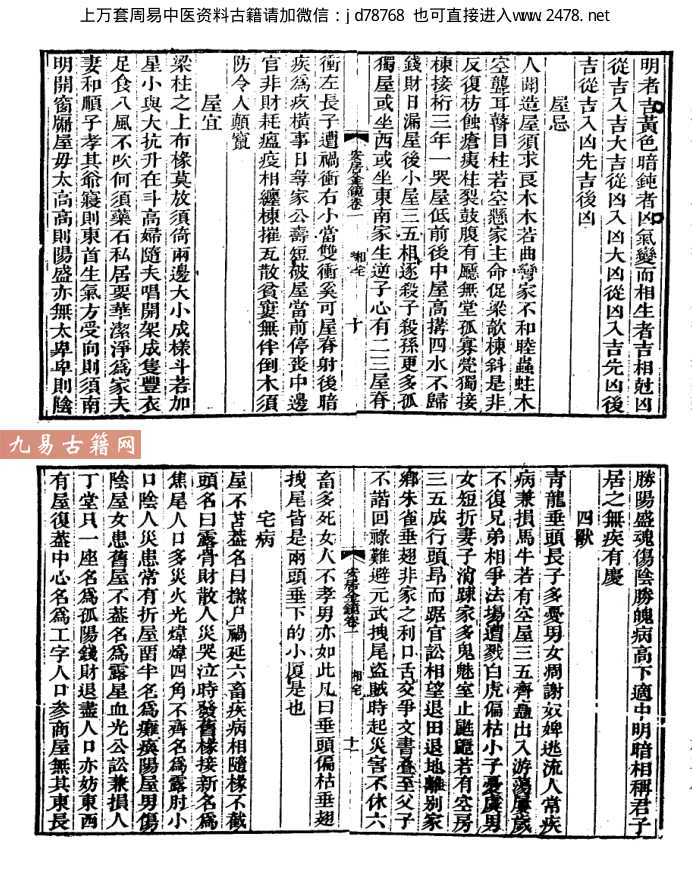 上万套周易中医资料古籍请加微信：jd78768 也可直接进入www.2478.net
明者吉黃色暗鈍者凶氣變而相生者吉相尅凶
從吉入吉大吉從凶入凶大凶從凶入吉先凶後
吉從吉入凶先吉後凶
屋忌
人間造屋須求良木木若曲彎家不和睦蟲蛀木
空聾耳瞽目柱若空懸家主命促梁歆棟斜是非
反復枋蝕瘡痍柱裂鼓腹有廳無堂孤寡煢獨接
棟接桁三年一哭屋低前後中屋高搆四水不歸
錢財日漏屋後小屋三五相逐殺子殺孫更多孤
獨屋或坐西或坐東南家生逆子心有二三屋脊
安居金鏡卷一
相宅
十
衝左長子遭禍衝右小當雙衝奚可屋脊射後暗
疾爲疚橫事日尋家公壽短破屋當前停喪中邊
官非財耗瘟疫相纏棟摧瓦散貧窶無伴倒木須
防令人顛竄
屋宜
梁柱之上布椽莫放須倚兩邊大小成樣斗若加
星小與大抗升在斗高婦隨夫唱開架成隻豐衣
足食八風不吹何須藥石私居要華潔淨爲家夫
妻和順子孝其爺寢則東首生氣方受向則須南
明開窗牖屋毋太高高則陽盛亦無太卑卑則陰
九易古籍网
勝陽盛魂傷陰勝魄病高下適中明暗相稱君子
居之無疾有慶
四獸
靑龍垂頭長子多憂男女凋謝奴婢逃流人常疾
病兼損馬牛若有空屋三五齊矗出入游蕩屢歲
不復兄弟相爭法場遭戮白虎偏枯小子憂歲男
女短折妻子淆踈家多鬼魅室止颭颺若有空房
三五成行頭昂而踞官訟相望退田退地離別家
鄉朱雀垂翅非家之利口舌交爭文書疊至父子
不諧回祿難避元武拽尾盜賊時起災害不休六
安居金鏡卷一
相宅
十一
畜多死女人不孝男亦如此凡曰垂頭偏枯垂翅
拽尾皆是兩頭垂下的小厦是也
宅病
屋不苫蓋名曰撚尸禍延六畜疾病相隨椽不截
頭名曰露骨財散人災哭泣時發舊椽接新名爲
焦尾人口多災火光煒煒四角不齊名爲露肘小
口陰人災患常有折屋畱半名爲癱瘓陽屋男傷
陰屋女患舊屋不蓋名爲露星血光公訟兼損人
丁堂只一座名爲孤陽錢財退盡人口亦妨東西
有屋復蓋中心名爲工字人口參商屋無其東長